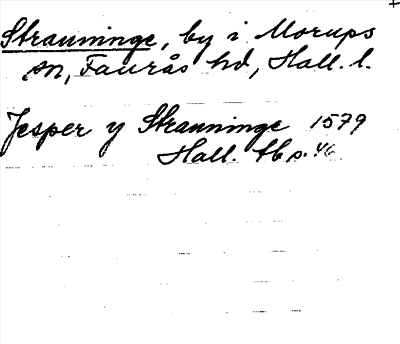 Strauninge, by i Morups
sn, Faurås hd, Hall. l.
Jesper y Strauninge 1579
Hall. tb s. 46